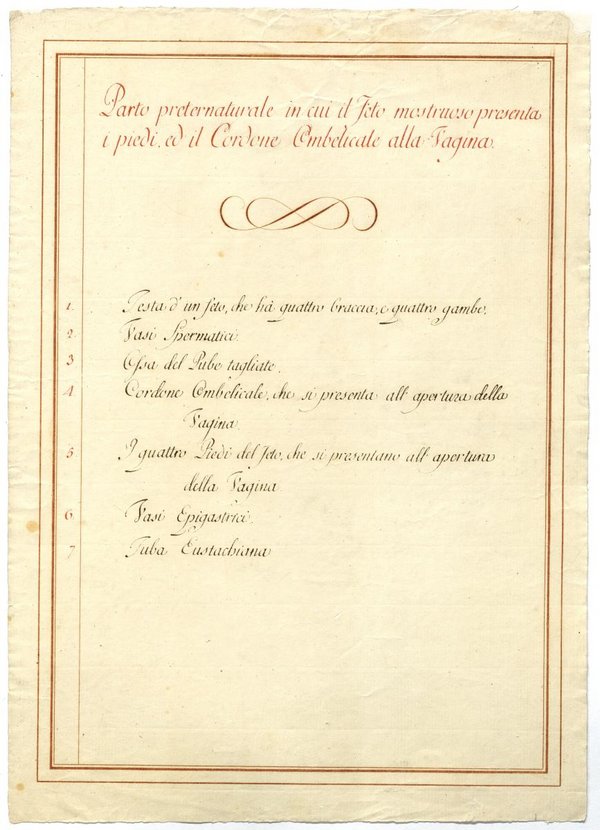 Parto preternaturale in cui il Feto mostruoso presenta
i piedi, ed il Cordone Ombelicale alla Vagina.
1. Testa d'un feto, che hà quattro braccia, e quattro gambe.
2. Vasi Spermatici.
3 Ossa del Pube tagliate.
4 Cordone Ombelicale, che si presenta all'apertura della
Vagina.
5 I quattro Piedi del Feto, che si presentano all'apertura
della Vagina
6. Vasi Epigastrici.
7 Tuba Eustachiana